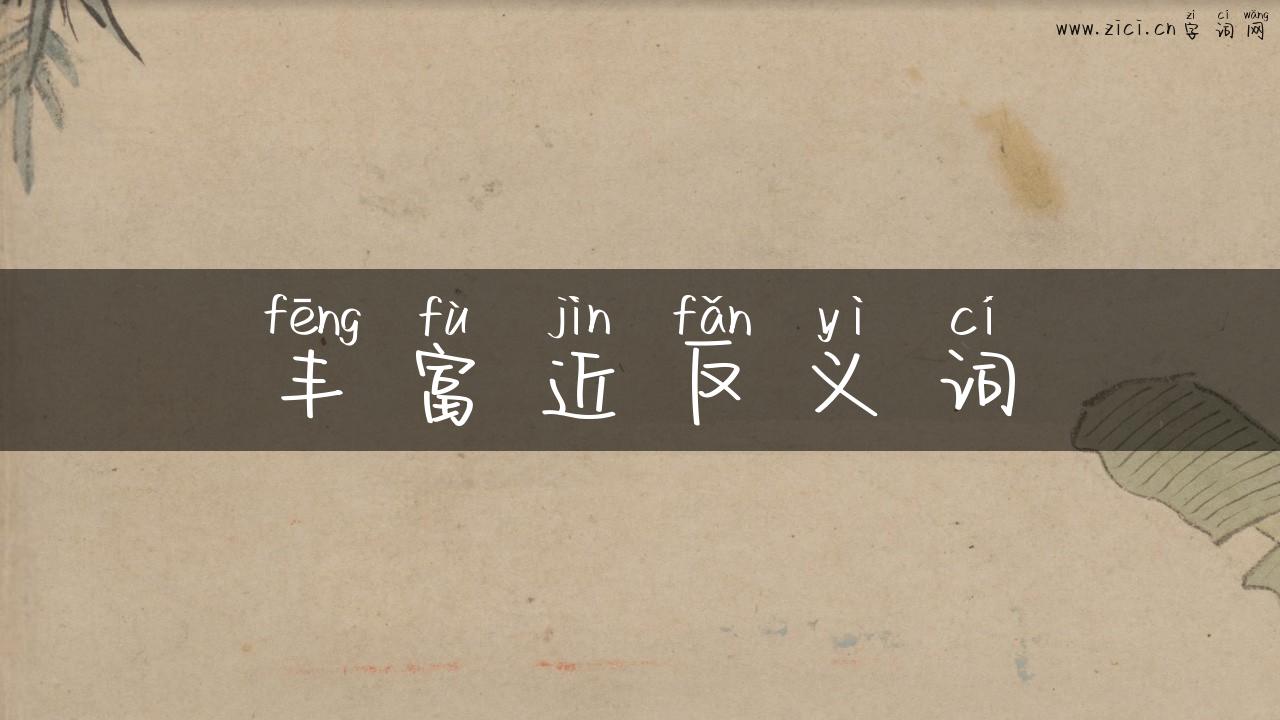 zì cí wǎng
www.zici.cn 字词网
fēng fù jìn fǎn yì cí
丰富近反义词